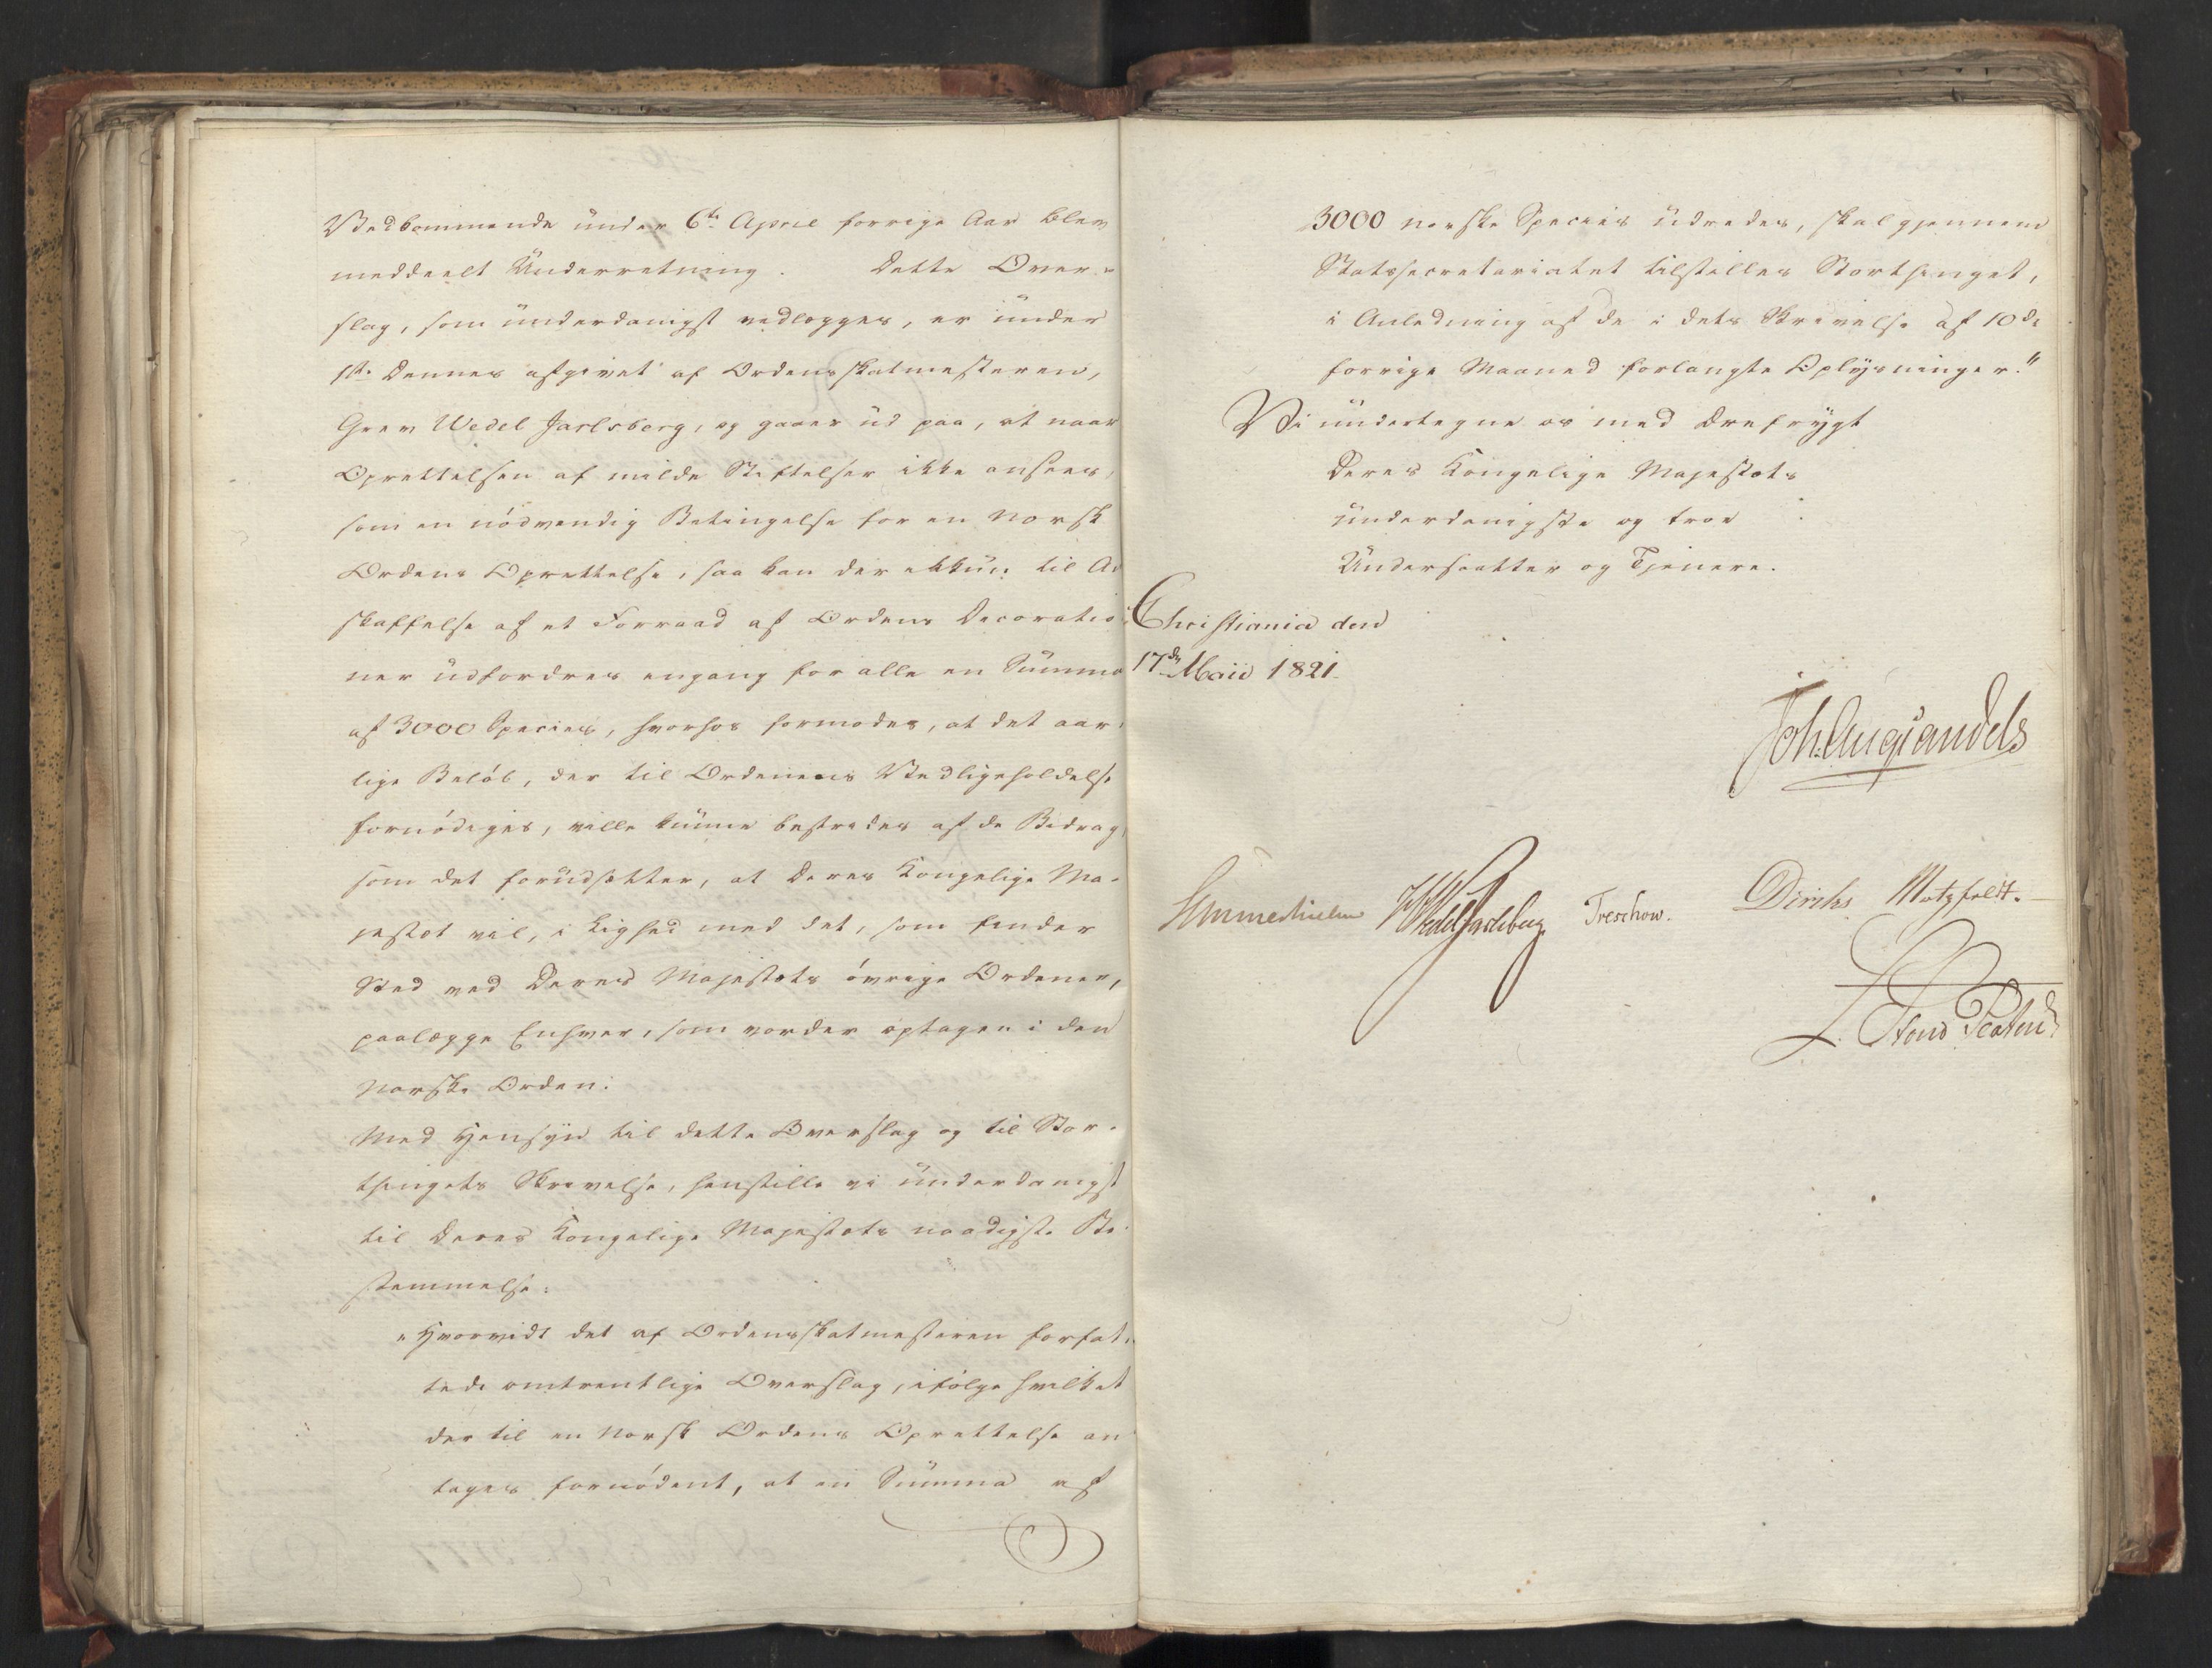 Vedkommende under 6te April forrige Aar blev
meddeelt Underretning. Dette Over-
slag, som underdanigst vedlægges, er under
1ste Dennes afgivet af Ordensskatmesteren,
Grev Wedel Jarlsberg, og gaaer ud paa, at naar
Oprettelsen af milde Stiftelser ikke ansees,
som en nödvendig Betingelse for en Norsk
Ordens Oprettelse, saa kan der ikkun til An
skaffelse af et Forraad af Ordens Decoratio-
ner udfordres engang for alle en Summa
af 3000 Species, hvorhos formodes, at det aar-
lige Belöb, der til Ordenens Vedligeholdelse
fornödiges, ville kunne bestrides af de Bidrag,
som det forudsætter, at Deres Kongelige Ma-
jestæt vil, i Lighed med det, som finder
Sted ved Deres Majestæts övrige Ordener,
paalægge Enhver, som vorder optagen i den
Norske Orden.
Med Hensyn til dette Overslag og til Stor-
thingets Skrivelse, henstille vi underdanigst
til Deres Kongelige Majestæts naadigste Be-
stemmelse:
"Hvorvidt det af Ordensskatmesteren forfat-
tede omtrentlige Overslag, ifölge hvilket
der til en Norsk Ordens Oprettelse an
tages fornödent, at en Summa af
3000 norske Species udredes, skal gjennem
Statssecretariatet tilstilles Storthinget,
i Anledning af de i dets Skrivelse af 10de
forrige Maaned forlangte Oplysninger."
Vi undertegne os med Ærefrygt
Deres Kongelige Majestæts
underdanigste og troe
Undersaatter og Tjenere.
Christiania den
17de Maii 1821.
Joh. Aug. Sandels
Sommerhielm Wedel Jarlsberg Treschow. Diriks Motzfeldt.